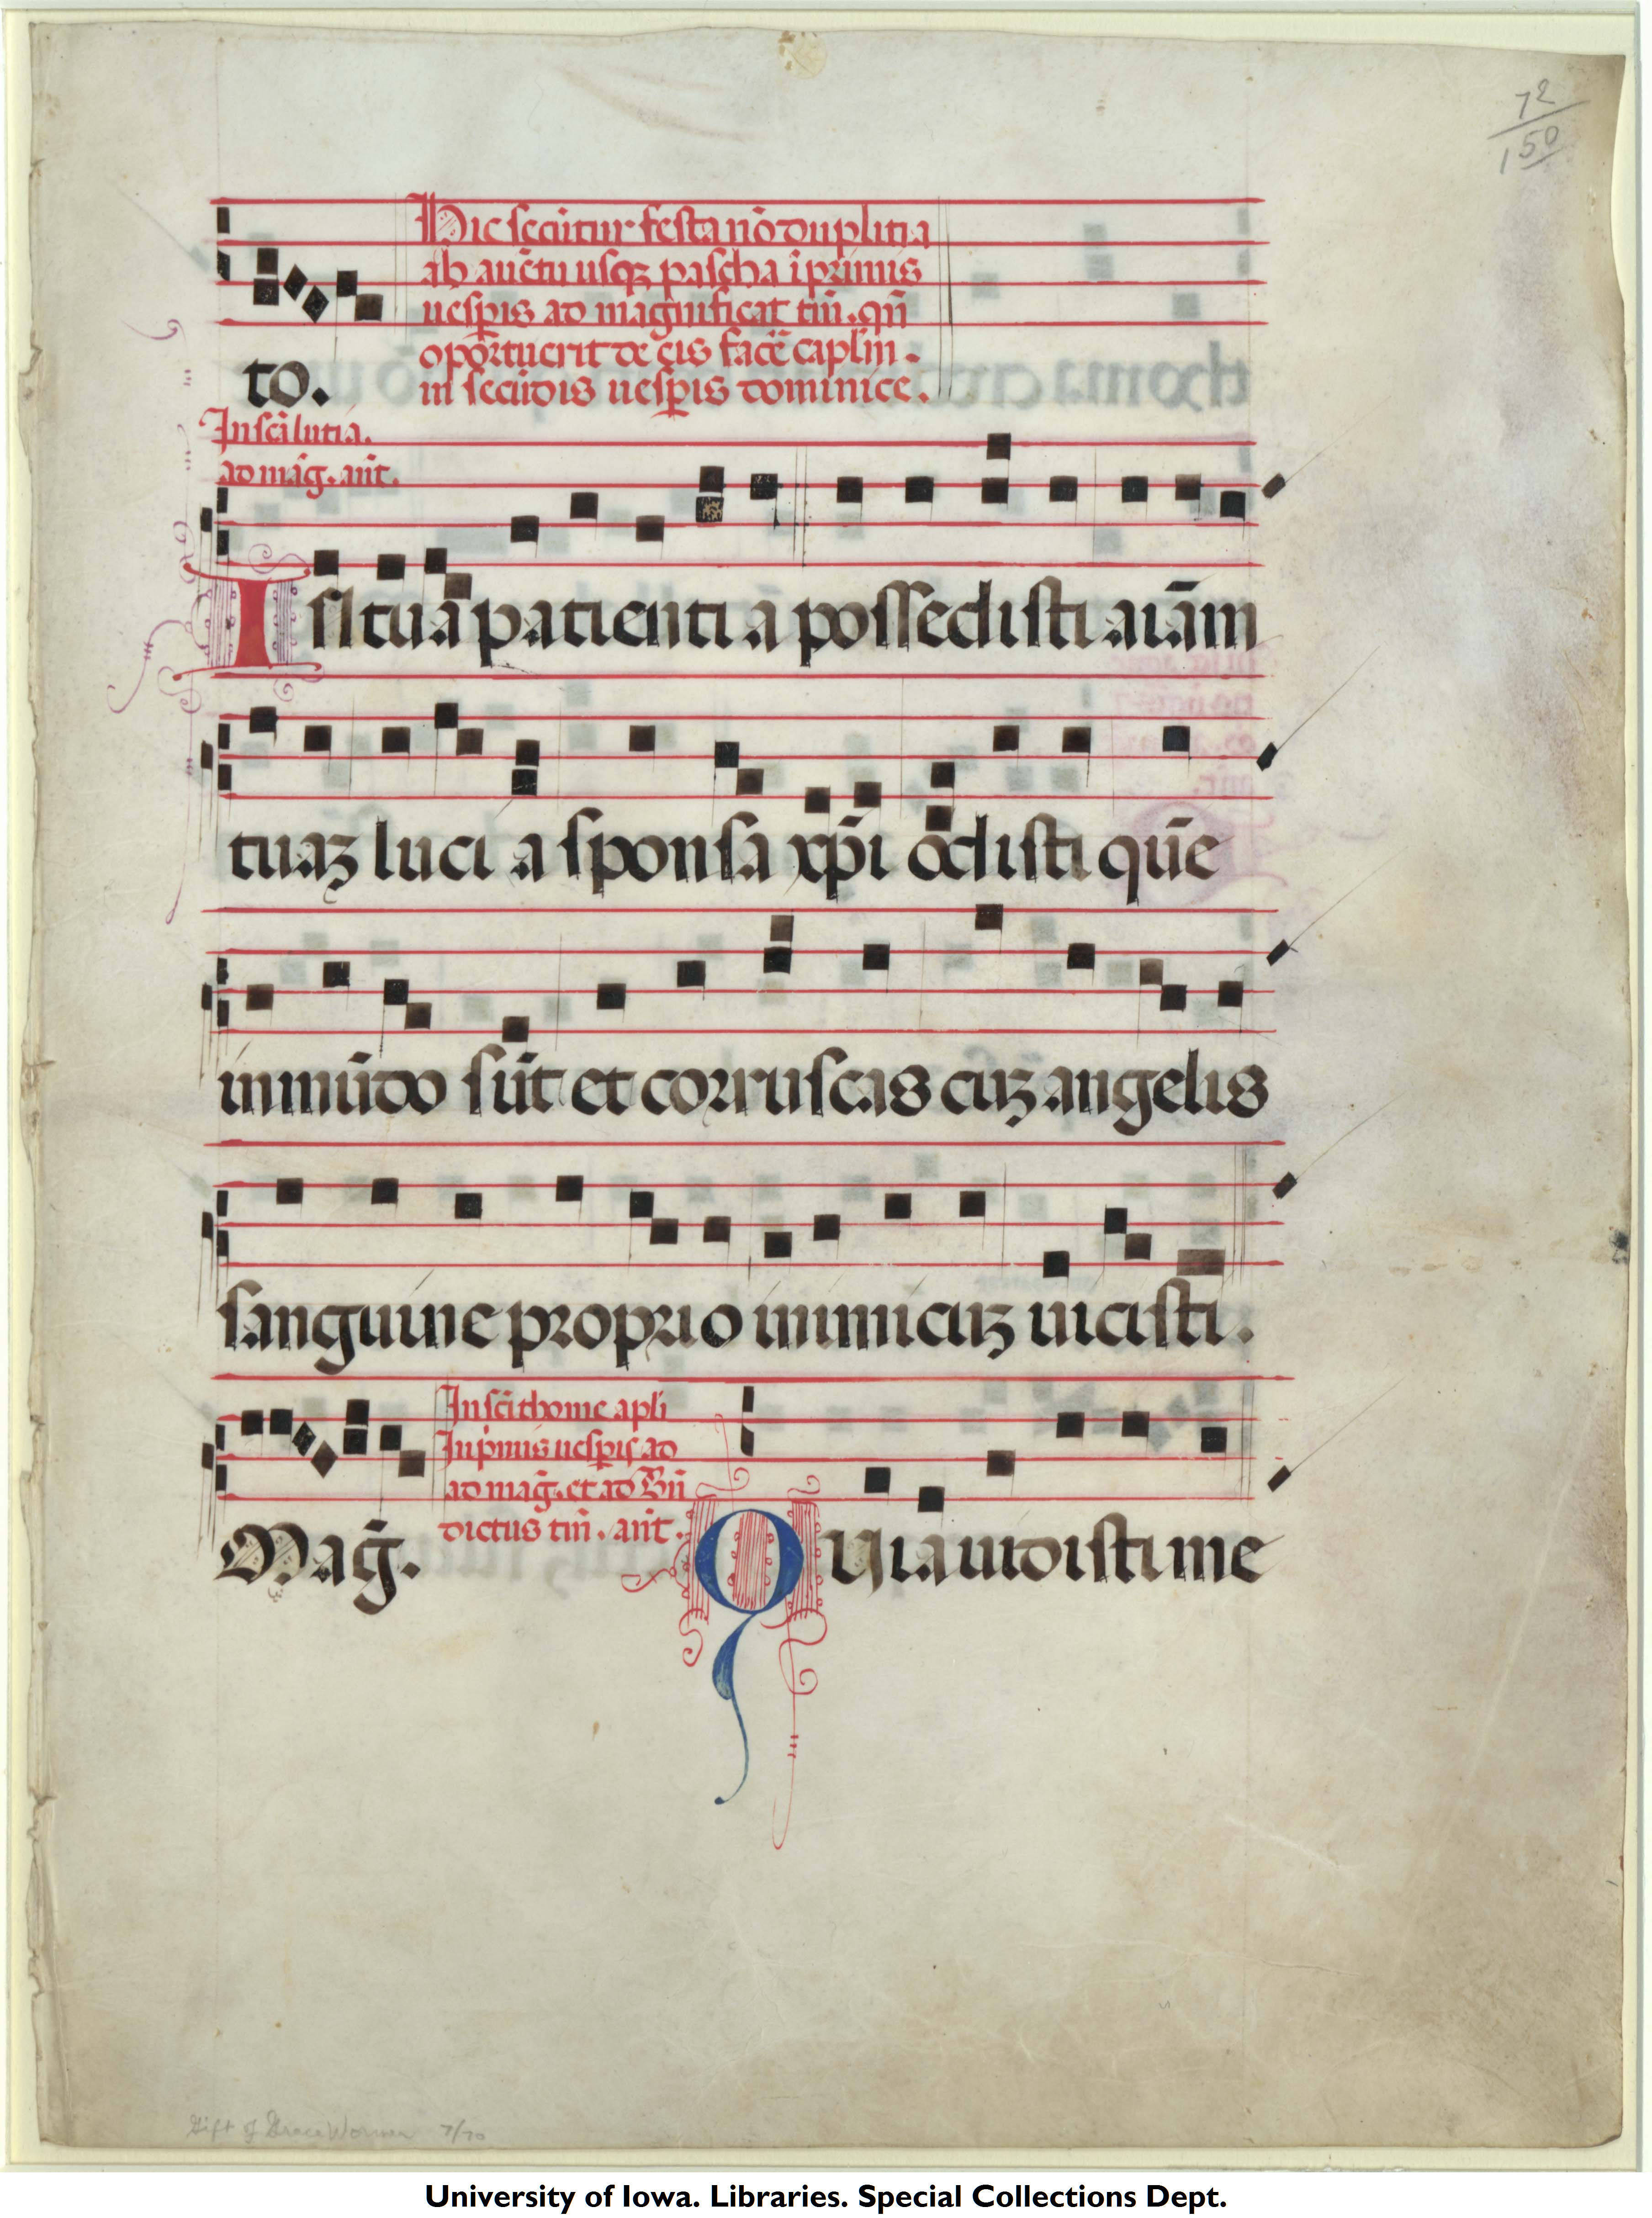 72
150
Hic secūtur festa nō duplitia
ab auētu usqꝫ pascha ī primis
uesp̄is ad magnificat tm̄. qn̄
oportuerit de eis facē caplm̄.
to. in secūdis uesp̄is dominice.
In scē lutia.
ad maḡ. ant̄.
I N tua patienti a possedisti aīam
tuaꝫ luci a sponsa xp̄i odisti que
in mūdo sūt et corruscas cuꝫ angelis
sanguine proprio inimicuꝫ uicisti.
In scī thome apl̄i
In p̄mis uesp̄is ad
ad maḡ. et ad Bn̄
dictus tm̄. ant̄.
Maḡ. QUia uidisti me
Gift of Grace Worner 7/70
University of Iowa. Libraries. Special Collections Dept.